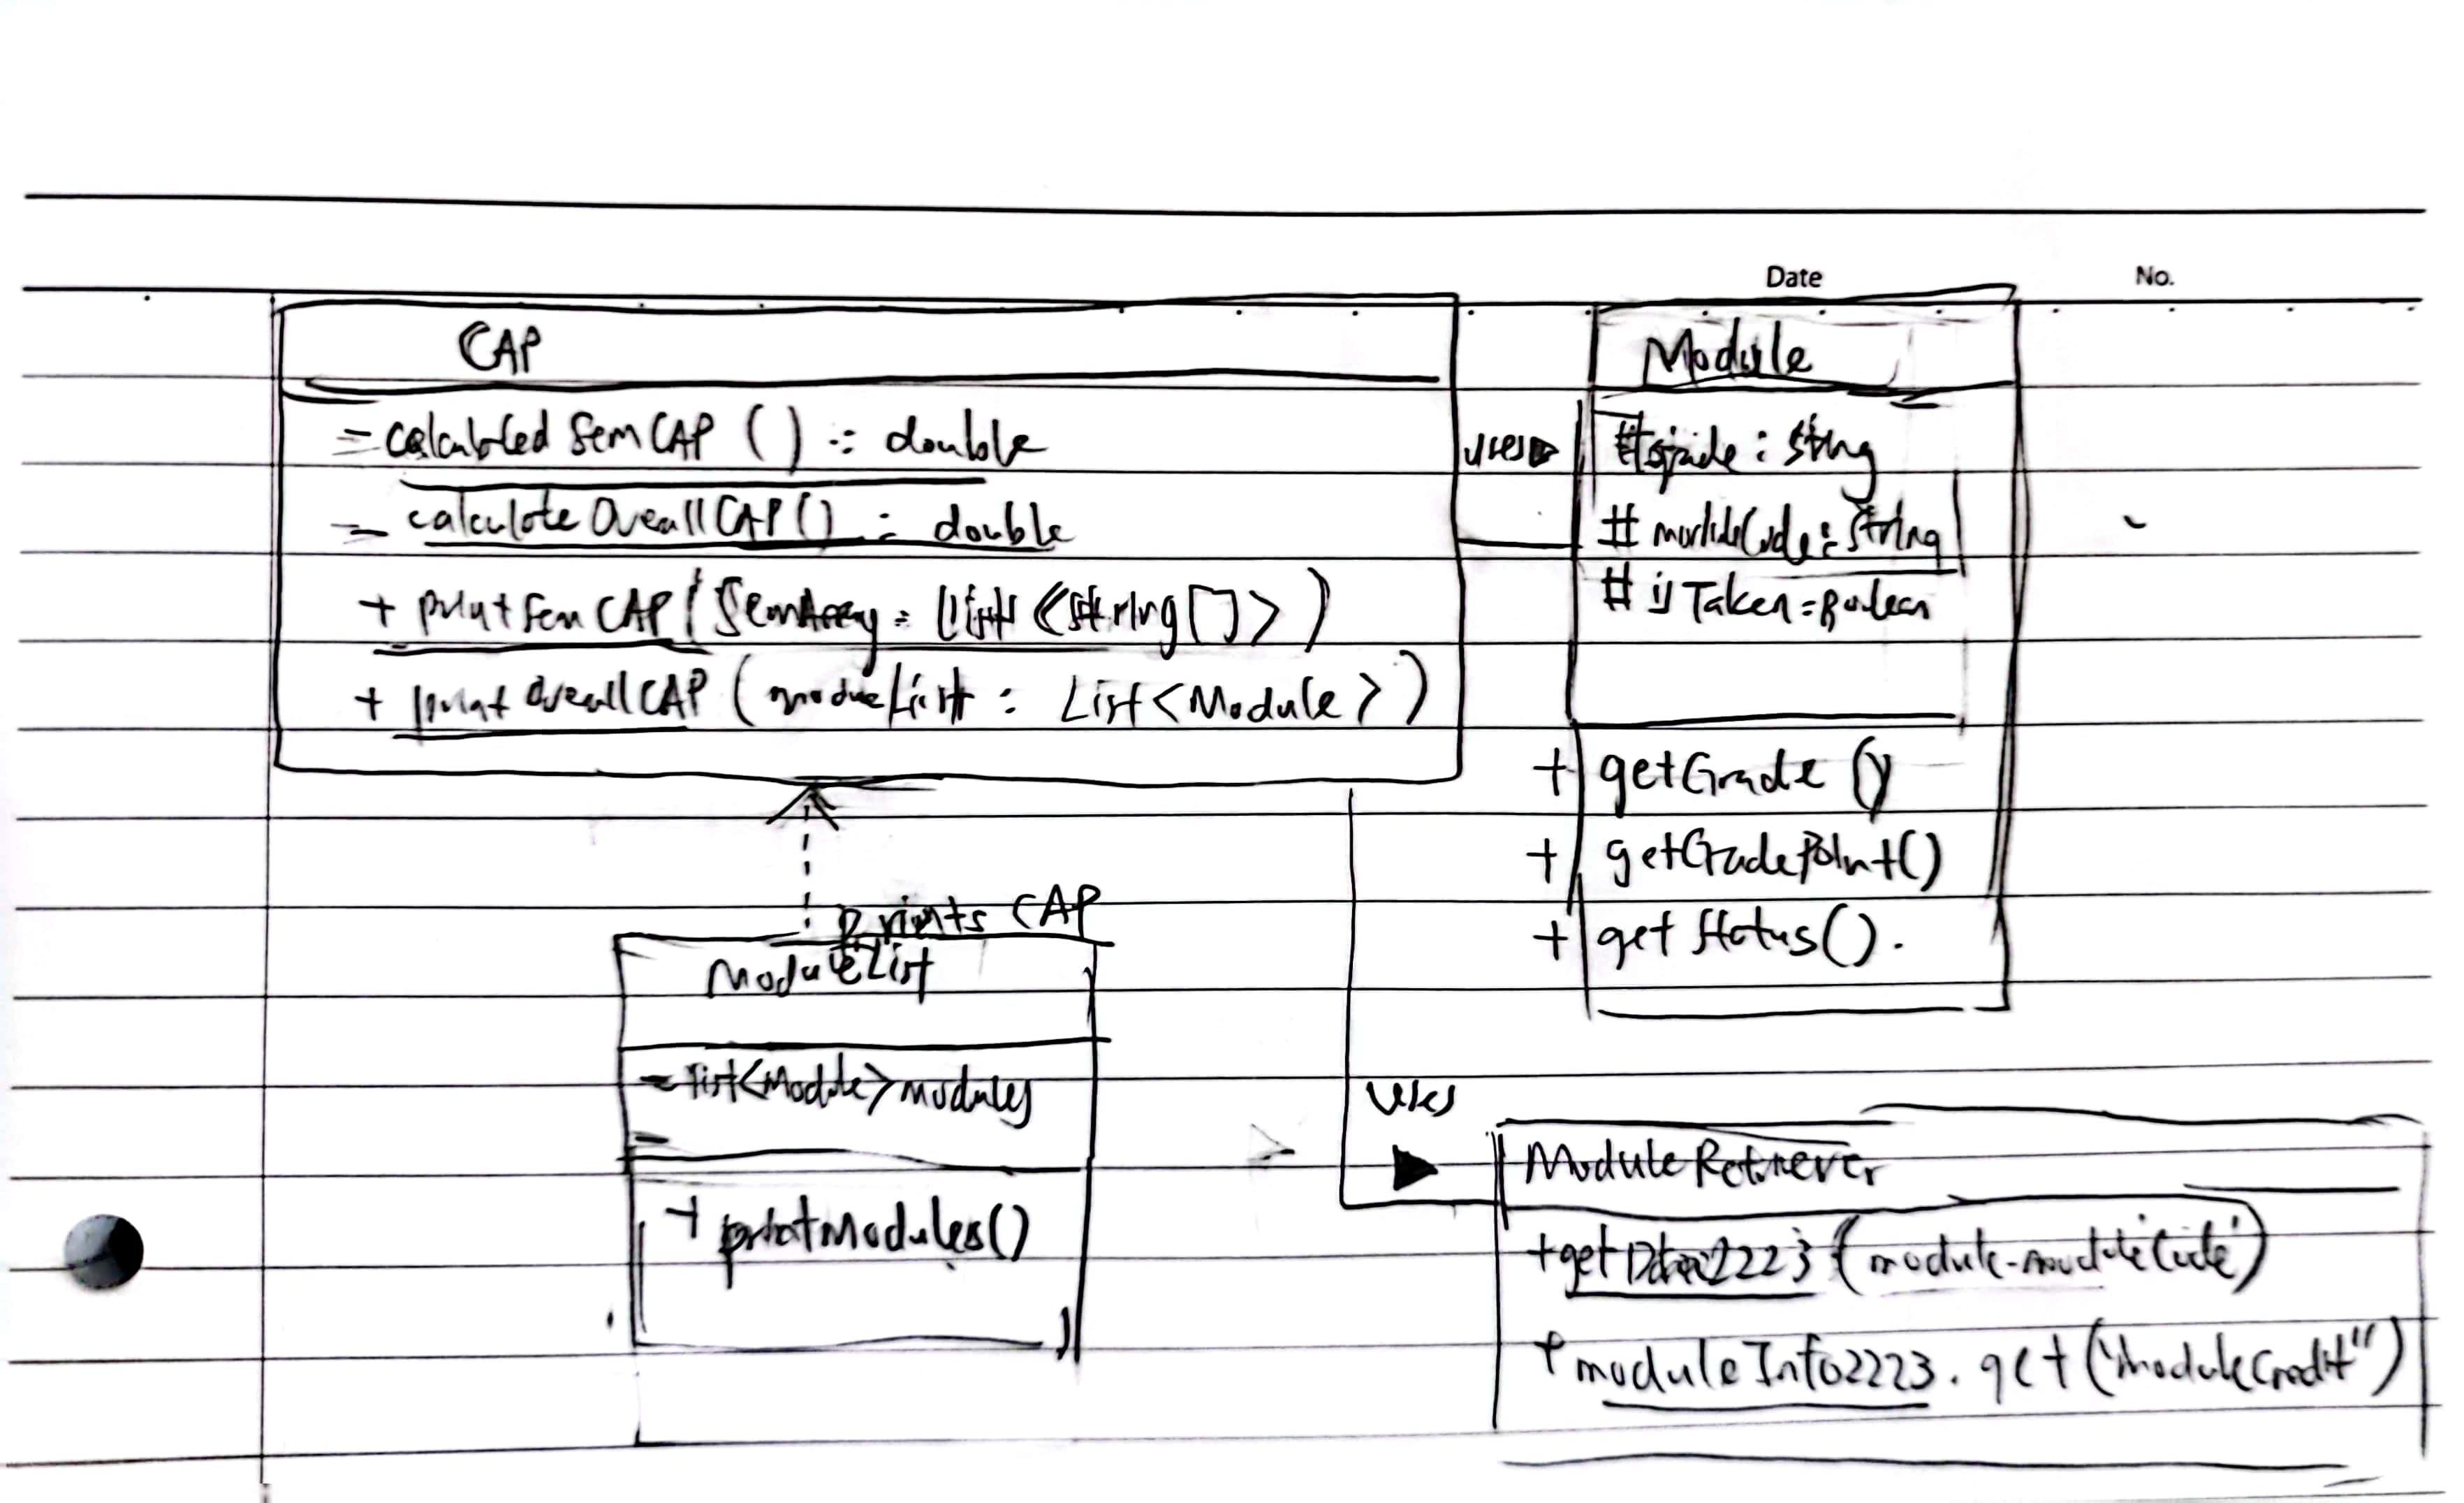 Date
No.
CAP
- calculated Sem CAP () : double
- calculate Overall CAP () : double
+ print Sem CAP ( SemArray : List <String []> )
+ print Overall CAP ( module List : List <Module> )
uses
Module
# grade : String
# moduleCode : String
# isTaken = Boolean
+ getGrade ()
+ getGradePoint()
+ getStatus().
prints CAP
ModuleList
- List<Module> modules
-
+ printModules()
uses
Module Retriever
+ get 2223 ( module.moduleCode )
+ moduleInfo2223.get ("moduleCredit")